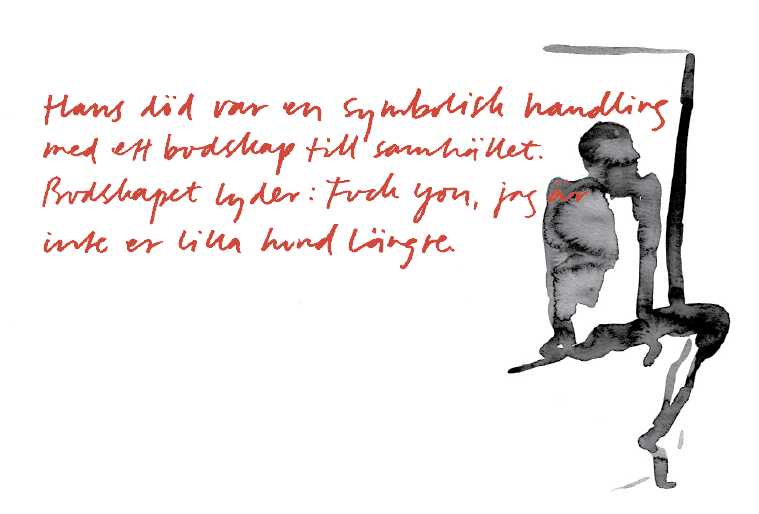 Hans död var en symbolisk handling
med ett budskap till samhället.
Budskapet lyder: Fuck you, jag är
inte er lilla hund längre.